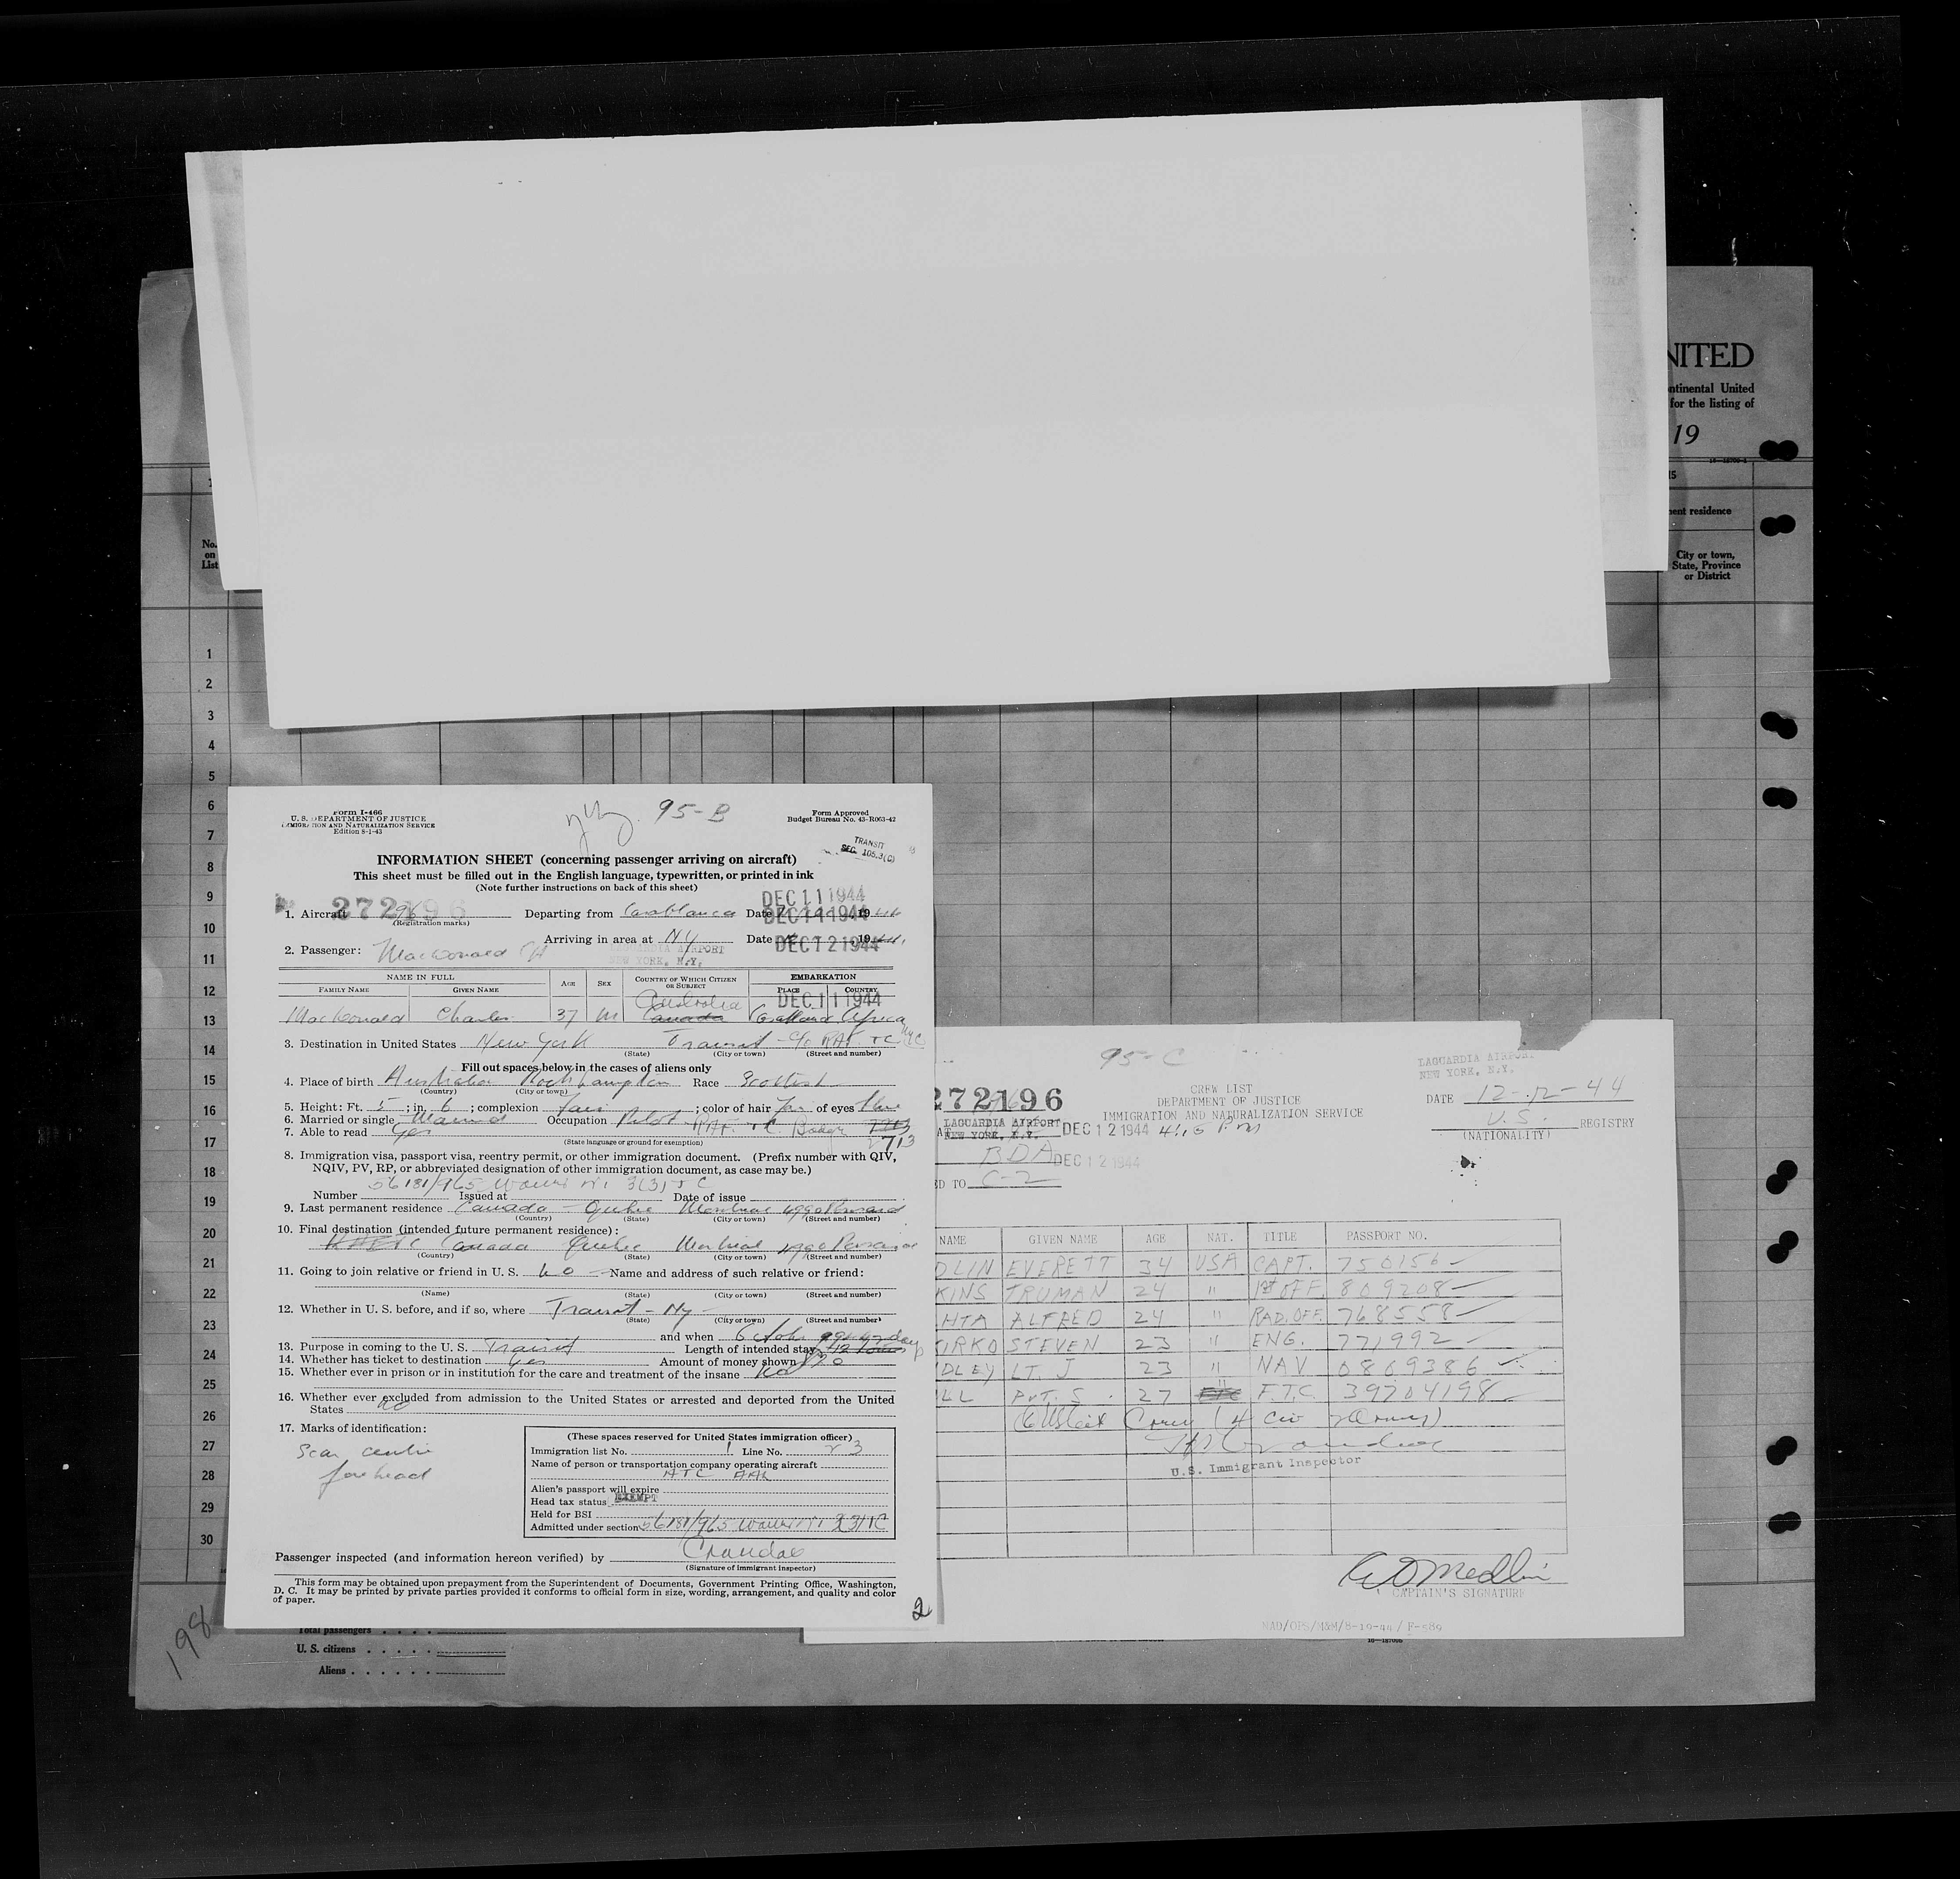 NITED
ntinental United
for the listing of
19
15
ent residence
No. on List
City or town, State, Province or District
1
2
3
4
5
6
7
8
9
10
11
12
13
14
15
16
17
18
19
20
21
22
23
24
25
26
27
28
29
30
Total passengers
U. S. citizens
Aliens
198
Form I-466
U. S. DEPARTMENT OF JUSTICE
IMMIGRATION AND NATURALIZATION SERVICE
Edition 8-1-43
95-B
Form Approved
Budget Bureau No. 43-R063-42
TRANSIT
SEC. 105.3(C)
INFORMATION SHEET (concerning passenger arriving on aircraft)
This sheet must be filled out in the English language, typewritten, or printed in ink
(Note further instructions on back of this sheet)
DEC 11 1944
1. Aircraft 272196 Departing from Casablanca Date DEC 11 1944 19
(Registration marks)
Arriving in area at NY Date DEC 12 1944 19
AIRPORT
NEW YORK, N.Y.
2. Passenger: MacDonald CH
NAME IN FULL
FAMILY NAME GIVEN NAME AGE SEX COUNTRY OF WHICH CITIZEN OR SUBJECT EMBARKATION
PLACE COUNTRY
Australia DEC 11 1944
MacDonald Charles 37 M Canada Africa
3. Destination in United States New York Transit - c/o RAF TC NYC
(State) (City or town) (Street and number)
Fill out spaces below in the cases of aliens only
4. Place of birth Australia Rockhampton Race Scottish
(Country) (City or town)
5. Height: Ft. 5 ; in. 6 ; complexion fair ; color of hair Fair of eyes blue
6. Married or single Married Occupation Pilot RAF TC
7. Able to read Yes 713
(State language or ground for exemption)
8. Immigration visa, passport visa, reentry permit, or other immigration document. (Prefix number with QIV,
NQIV, PV, RP, or abbreviated designation of other immigration document, as case may be.)
56181/965
Number Issued at Date of issue
9. Last permanent residence Canada Quebec Montreal
(Country) (State) (City or town) (Street and number)
10. Final destination (intended future permanent residence):
Canada Quebec Montreal
(Country) (State) (City or town) (Street and number)
11. Going to join relative or friend in U. S. No Name and address of such relative or friend:
(Name) (State) (City or town) (Street and number)
12. Whether in U. S. before, and if so, where Transit - NY
(State) (City or town) (Street and number)
and when October
13. Purpose in coming to the U. S. Transit Length of intended stay
14. Whether has ticket to destination Yes Amount of money shown
15. Whether ever in prison or in institution for the care and treatment of the insane No
16. Whether ever excluded from admission to the United States or arrested and deported from the United
States no
17. Marks of identification:
Scar centre
forehead
(These spaces reserved for United States immigration officer)
Immigration list No. 1 Line No. 23
Name of person or transportation company operating aircraft
ATC AAL
Alien's passport will expire
Head tax status EXEMPT
Held for BSI
Admitted under section 56181/965
Passenger inspected (and information hereon verified) by Crandall
(Signature of immigrant inspector)
This form may be obtained upon prepayment from the Superintendent of Documents, Government Printing Office, Washington,
D. C. It may be printed by private parties provided it conforms to official form in size, wording, arrangement, and quality and color
of paper.
2
95-C
LAGUARDIA AIRPORT
NEW YORK, N.Y.
272196
CREW LIST
DEPARTMENT OF JUSTICE
IMMIGRATION AND NATURALIZATION SERVICE
DATE 12-12-44
U.S. REGISTRY
(NATIONALITY)
AT LAGUARDIA AIRPORT NEW YORK, N.Y. DEC 12 1944 4:15 P.M
BDA DEC 12 1944
ED TO C-2
NAME GIVEN NAME AGE NAT. TITLE PASSPORT NO.
DLIN EVERETT 34 USA CAPT. 750156
KINS TRUMAN 24 " 1st OFF. 809208
HTA ALFRED 24 " RAD. OFF. 768558
IRKO STEVEN 23 " ENG. 771992
DLEY LT. J 23 " NAV 0809386
LL PVT. S. 27 " F.T.C. 39204198
U.S. Immigrant Inspector
CAPTAIN'S SIGNATURE